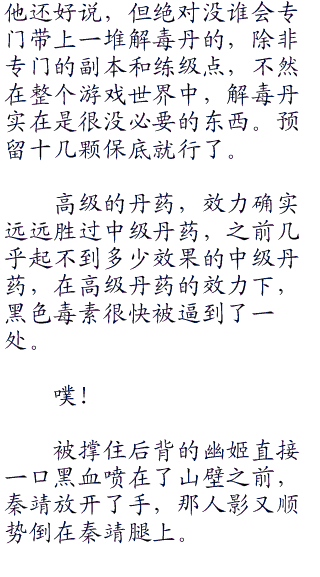 他还好说，但绝对没谁会专
门带上一堆解毒丹的，除非
专门的副本和练级点，不然
在整个游戏世界中，解毒丹
实在是很没必要的东西。预
留十几颗保底就行了。
高级的丹药，效力确实
远远胜过中级丹药，之前几
乎起不到多少效果的中级丹
药，在高级丹药的效力下，
黑色毒素很快被逼到了一
处。
噗！
被撑住后背的幽姬直接
一口黑血喷在了山壁之前，
秦靖放开了手，那人影又顺
势倒在秦靖腿上。